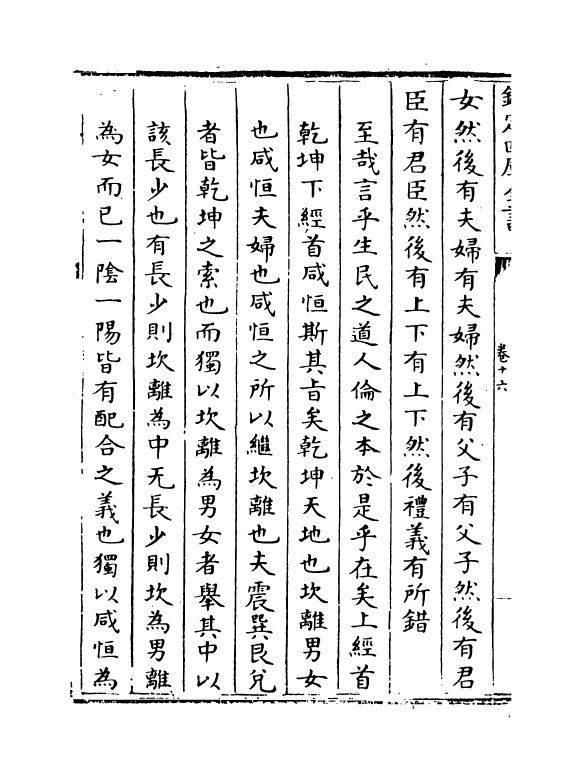 欽定四庫全書
卷十六
女然後有夫婦有夫婦然後有父子有父子然後有君
臣有君臣然後有上下有上下然後禮義有所錯
至哉言乎生民之道人倫之本於是乎在矣上經首
乾坤下經首咸恒斯其㫖矣乾坤天地也坎離男女
也咸恒夫婦也咸恒之所以繼坎離也夫震巽艮兌
者皆乾坤之索也而獨以坎離為男女者舉其中以
該長少也有長少則坎離為中无長少則坎為男離
為女而已一陰一陽皆有配合之義也獨以咸恒為